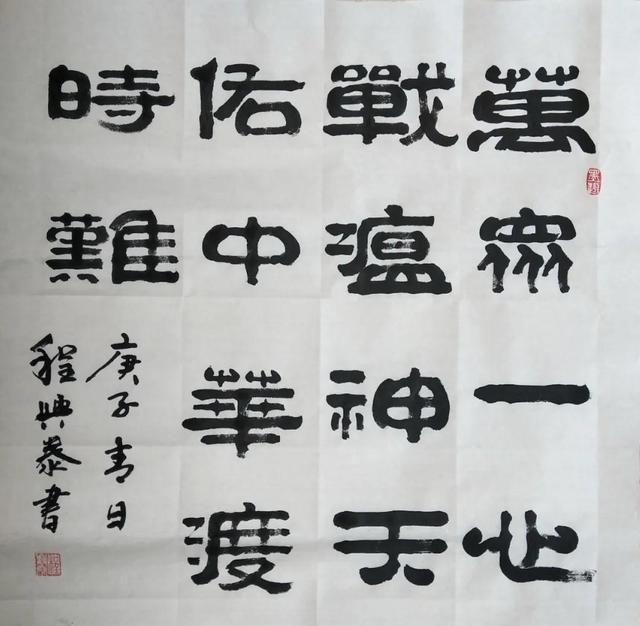 萬眾一心
戰瘟神天
佑中華渡
時難
庚子春日
程興泰書